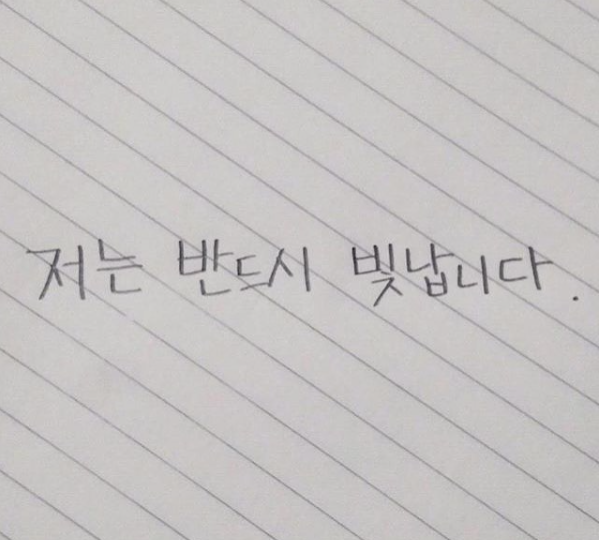 저는 반드시 빛납니다.